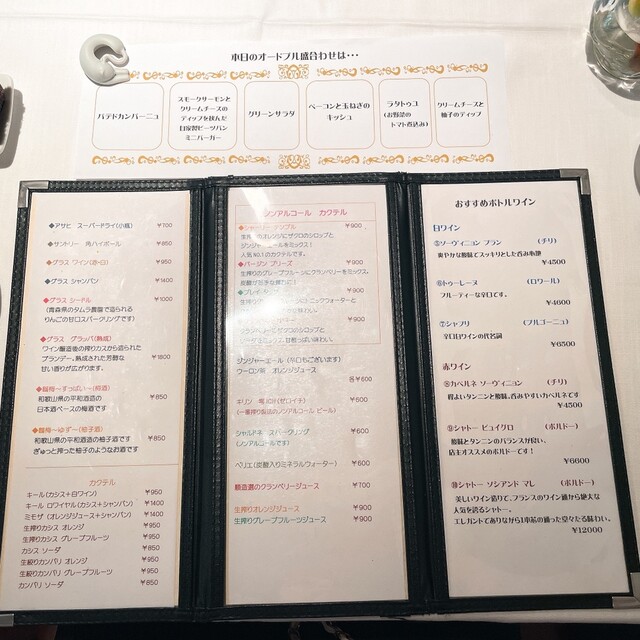 本日のオードブル盛合わせは・・・
パテドカンパーニュ
スモークサーモンと
クリームチーズの
ディップを挟んだ
自家製ビーツパン
ミニバーガー
グリーンサラダ
ベーコンと玉ねぎの
キッシュ
ラタトゥユ
(お野菜の
トマト煮込み)
クリームチーズと
柚子のディップ
◆アサヒ スーパードライ(小瓶) ¥700
◆サントリー 角ハイボール ¥850
◆グラス ワイン(赤・白) ¥950
◆グラス シャンパン ¥1400
◆グラス シードル ¥1000
(青森県のタムラ農園で造られる
りんごの甘口スパークリングです)
◆グラス グラッパ(熟成)
ワイン醸造後の搾りカスから造られた
ブランデー。熟成された芳醇な ¥1800
甘い香りが広がります。
◆鶴梅～すっぱい～(梅酒)
和歌山県の平和酒造の ¥850
日本酒ベースの梅酒です
◆鶴梅～ゆず～(柚子酒)
和歌山県の平和酒造の柚子酒です ¥850
ぎゅっと搾った柚子のようなお酒です
カクテル
キール(カシス+白ワイン) ¥950
キール ロワイヤル(カシス+シャンパン) ¥1400
ミモザ (オレンジジュース+シャンパン) ¥1400
生搾りカシス オレンジ ¥950
生搾りカシス グレープフルーツ ¥950
カシス ソーダ ¥850
生絞りカンパリ オレンジ ¥950
生絞りカンパリ グレープフルーツ ¥950
カンパリ ソーダ ¥850
ノンアルコール カクテル
◆シャーリー テンプル ¥900
生搾りのオレンジにザクロのシロップと
ジンジャーエールをミックス!
人気 NO.1のカクテルです。
◆バージン ブリーズ ¥900
生搾りのグレープフルーツにクランベリーをミックス。
¥900
¥900
シロップと
ジンジャーエール(辛口もございます)
ウーロン茶 オレンジジュース
各¥600
キリン 零ICHI(ゼロイチ) ¥600
(一番搾り製法のノンアルコール ビール)
シャルドネ スパークリング ¥600
(ノンアルコールです)
ペリエ(炭酸入りミネラルウォーター) ¥600
醸造選のクランベリージュース ¥700
生搾りオレンジジュース ¥900
生搾りグレープフルーツジュース ¥900
おすすめボトルワイン
白ワイン
⑤ソーヴィニョン ブラン (チリ)
爽やかな酸味でスッキリとした呑み心地
¥4500
⑥トゥーレーヌ (ロワール)
フルーティーな辛口です。
¥4600
⑦シャブリ (ブルゴーニュ)
辛口白ワインの代名詞
¥6500
赤ワイン
⑧カベヘネ ソーヴィニョン (チリ)
程よいタンニンと酸味。呑みやすいカベルネです
¥4500
⑨シャトー ピュイグロ (ボルドー)
酸味とタンニンのバランスが良い、
店主オススメのボルドーです!
¥6600
⑩シャトー ソシアンド マレ (ボルドー)
美しいワイン造りで、フランスのワイン通から絶大な
人気を誇るシャトー。
エレガントでありながら1本芯の通った堂々たる味わい。
¥12000